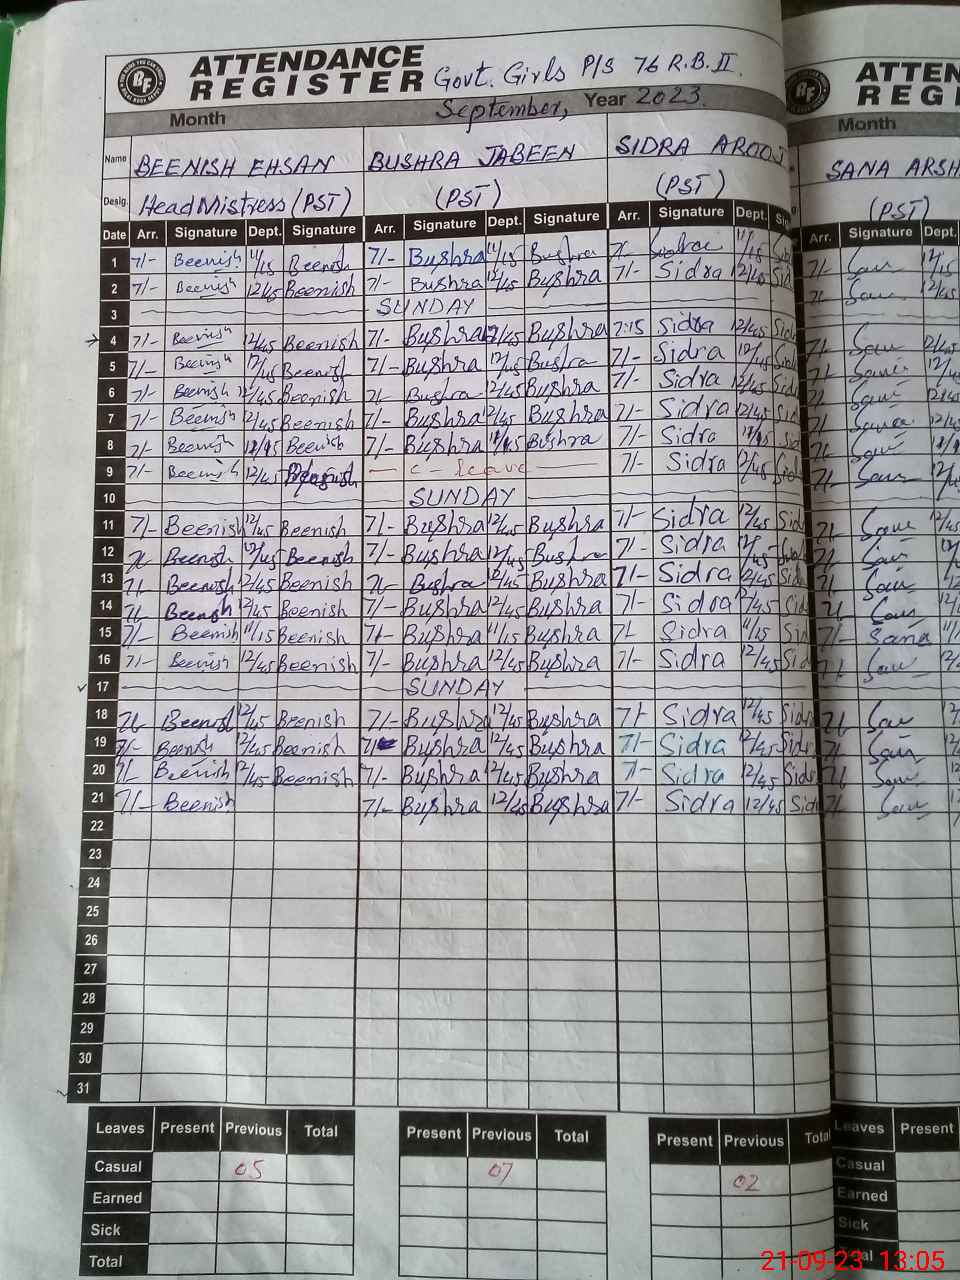 ATTENDANCE REGISTER Govt. Girls P/S 76 R.B. II
Month September, Year 2023.
Name BEENISH EHSAN BUSHRA JABEEN SIDRA AROOJ
Desig. Head Mistress (PST) (PST) (PST)
Date Arr. Signature Dept. Signature Arr. Signature Dept. Signature Arr. Signature Dept.
1 7/- Beenish 11/15 Beenish 7/- Bushra 11/15 Bushra Sidra 11/15
2 7/- Beenish 12/45 Beenish 7/- Bushra 12/45 Bushra 7/- Sidra 12/45 Sid
3 SUNDAY
4 7/- Beenish 12/45 Beenish 7/- Bushra 12/45 Bushra 7:15 Sidra 12/45 Sid
5 7/- Beenish 12/45 Beenish 7/- Bushra 12/45 Bushra 7/- Sidra 12/45
6 7/- Beenish 12/45 Beenish 7/- Bushra 12/45 Bushra 7/- Sidra 12/45 Sid
7 7/- Beenish 12/45 Beenish 7/- Bushra 12/45 Bushra 7/- Sidra 12/45 Sid
8 7/- Beenish Beenish 7/- Bushra Bushra 7/- Sidra Sid
9 7/- Beenish 12/45 Beenish C-leave 7/- Sidra 12/45 Sid
10 SUNDAY
11 7/- Beenish 12/45 Beenish 7/- Bushra 12/45 Bushra 7/- Sidra 12/45 Sid
12 7/- Beenish 12/45 Beenish 7/- Bushra 12/45 Bushra 7/- Sidra 12/45
13 7/- Beenish 12/45 Beenish 7/- Bushra 12/45 Bushra 7/- Sidra 12/45 Sid
14 7/- Beenish 12/45 Beenish 7/- Bushra 12/45 Bushra 7/- Sidra 12/45 Sid
15 7/- Beenish 11/15 Beenish 7/- Bushra 11/15 Bushra 7/- Sidra 11/15 Sid
16 7/- Beenish 12/45 Beenish 7/- Bushra 12/45 Bushra 7/- Sidra 12/45 Sid
17 SUNDAY
18 7/- Beenish 12/45 Beenish 7/- Bushra 12/45 Bushra 7/- Sidra 12/45 Sidr
19 7/- Beenish 12/45 Beenish 7/- Bushra 12/45 Bushra 7/- Sidra 12/45 Sid
20 7/- Beenish 12/45 Beenish 7/- Bushra 12/45 Bushra 7/- Sidra 12/45 Sidr
21 7/- Beenish 7/- Bushra 12/45 Bushra 7/- Sidra 12/45 Sid
22
23
24
25
26
27
28
29
30
31
Leaves Present Previous Total Present Previous Total Present Previous Total
Casual 05 07 02
Earned
Sick
Total
ATTEN
REGI
Month
SANA ARSH
(PST)
Arr. Signature Dept.
15 7/- Sana
Leaves Present
Casual
Earned
Sick
21-09-23 13:05